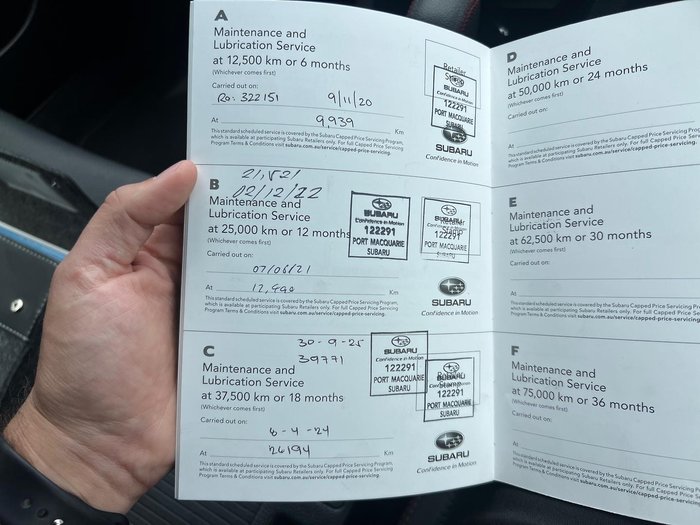 A
Maintenance and
Lubrication Service
at 12,500 km or 6 months
(Whichever comes first)
Carried out on:
Ro: 322151 9/11/20
At 9939 Km
This standard scheduled service is covered by the Subaru Capped Price Servicing Program,
which is available at participating Subaru Retailers only. For full Capped Price Servicing
Program Terms & Conditions visit subaru.com.au/service/capped-price-servicing.
Retailer
SUBARU
Confidence in Motion
122291
PORT MACQUARIE
SUBARU
SUBARU
Confidence in Motion
21,521
02/12/22
B
Maintenance and
Lubrication Service
at 25,000 km or 12 months
(Whichever comes first)
Carried out on:
07/06/21
At Km
This standard scheduled service is covered by the Subaru Capped Price Servicing Program,
which is available at participating Subaru Retailers only. For full Capped Price Servicing
Program Terms & Conditions visit subaru.com.au/service/capped-price-servicing.
SUBARU
Confidence in Motion
122291
PORT MACQUARIE
SUBARU
SUBARU
122291
PORT MACQUARIE
SUBARU
SUBARU
Confidence in Motion
30-9-25
39771
C
Maintenance and
Lubrication Service
at 37,500 km or 18 months
(Whichever comes first)
Carried out on:
8-4-24
At 26194 Km
This standard scheduled service is covered by the Subaru Capped Price Servicing Program,
which is available at participating Subaru Retailers only. For full Capped Price Servicing
Program Terms & Conditions visit subaru.com.au/service/capped-price-servicing.
SUBARU
Confidence in Motion
122291
PORT MACQUARIE
SUBARU
Stamp
122291
PORT MACQUARIE
SUBARU
SUBARU
Confidence in Motion
D
Maintenance and
Lubrication Service
at 50,000 km or 24 months
(Whichever comes first)
Carried out on:
At
This standard scheduled service is covered by the Subaru Capped
which is available at participating Subaru Retailers only. For full Capped
Program Terms & Conditions visit subaru.com.au/service/capped-price-servicing.
E
Maintenance and
Lubrication Service
at 62,500 km or 30 months
(Whichever comes first)
Carried out on:
At
This standard scheduled service is covered by the Subaru Capped
which is available at participating Subaru Retailers only. For full Capped
Program Terms & Conditions visit subaru.com.au/service/capped-price-servicing.
F
Maintenance and
Lubrication Service
at 75,000 km or 36 months
(Whichever comes first)
Carried out on:
At
This standard scheduled service is covered by the Subaru Capped
which is available at participating Subaru Retailers only. For full
Program Terms & Conditions visit subaru.com.au/service/capped